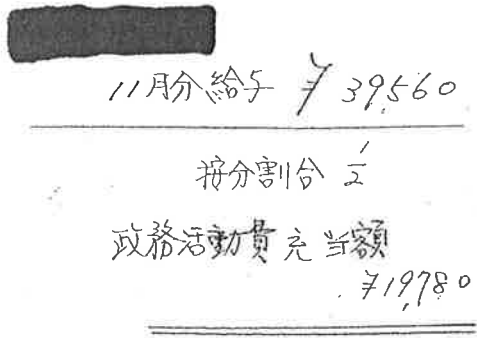 11月分給与 ¥39,560
按分割合 1/2
政務活動費充当額
¥19,780